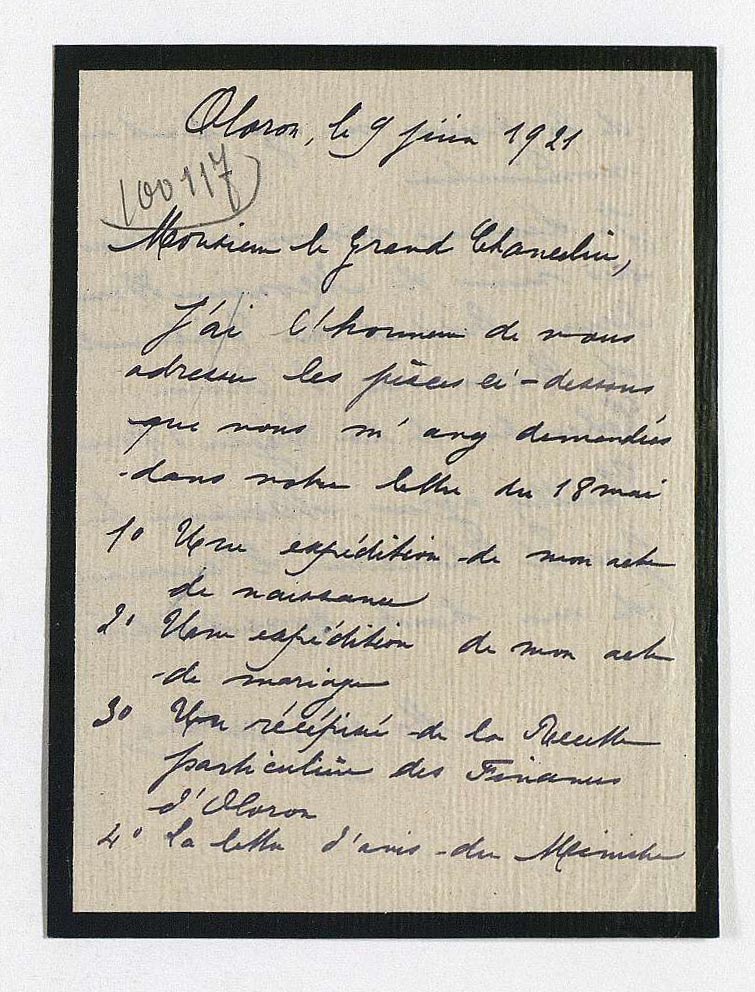 Oloron, le 9 juin 1921
100117
Monsieur le Grand Chancelier,
J'ai l'honneur de vous
adresser les pièces ci-dessous
que vous m'avez demandées
dans votre lettre du 18 mai
1° Une expédition de mon acte
de naissance
2° Une expédition de mon acte
de mariage
3° Un récépissé de la Recette
particulière des Finances
d'Oloron
4° La lettre d'avis du Ministre